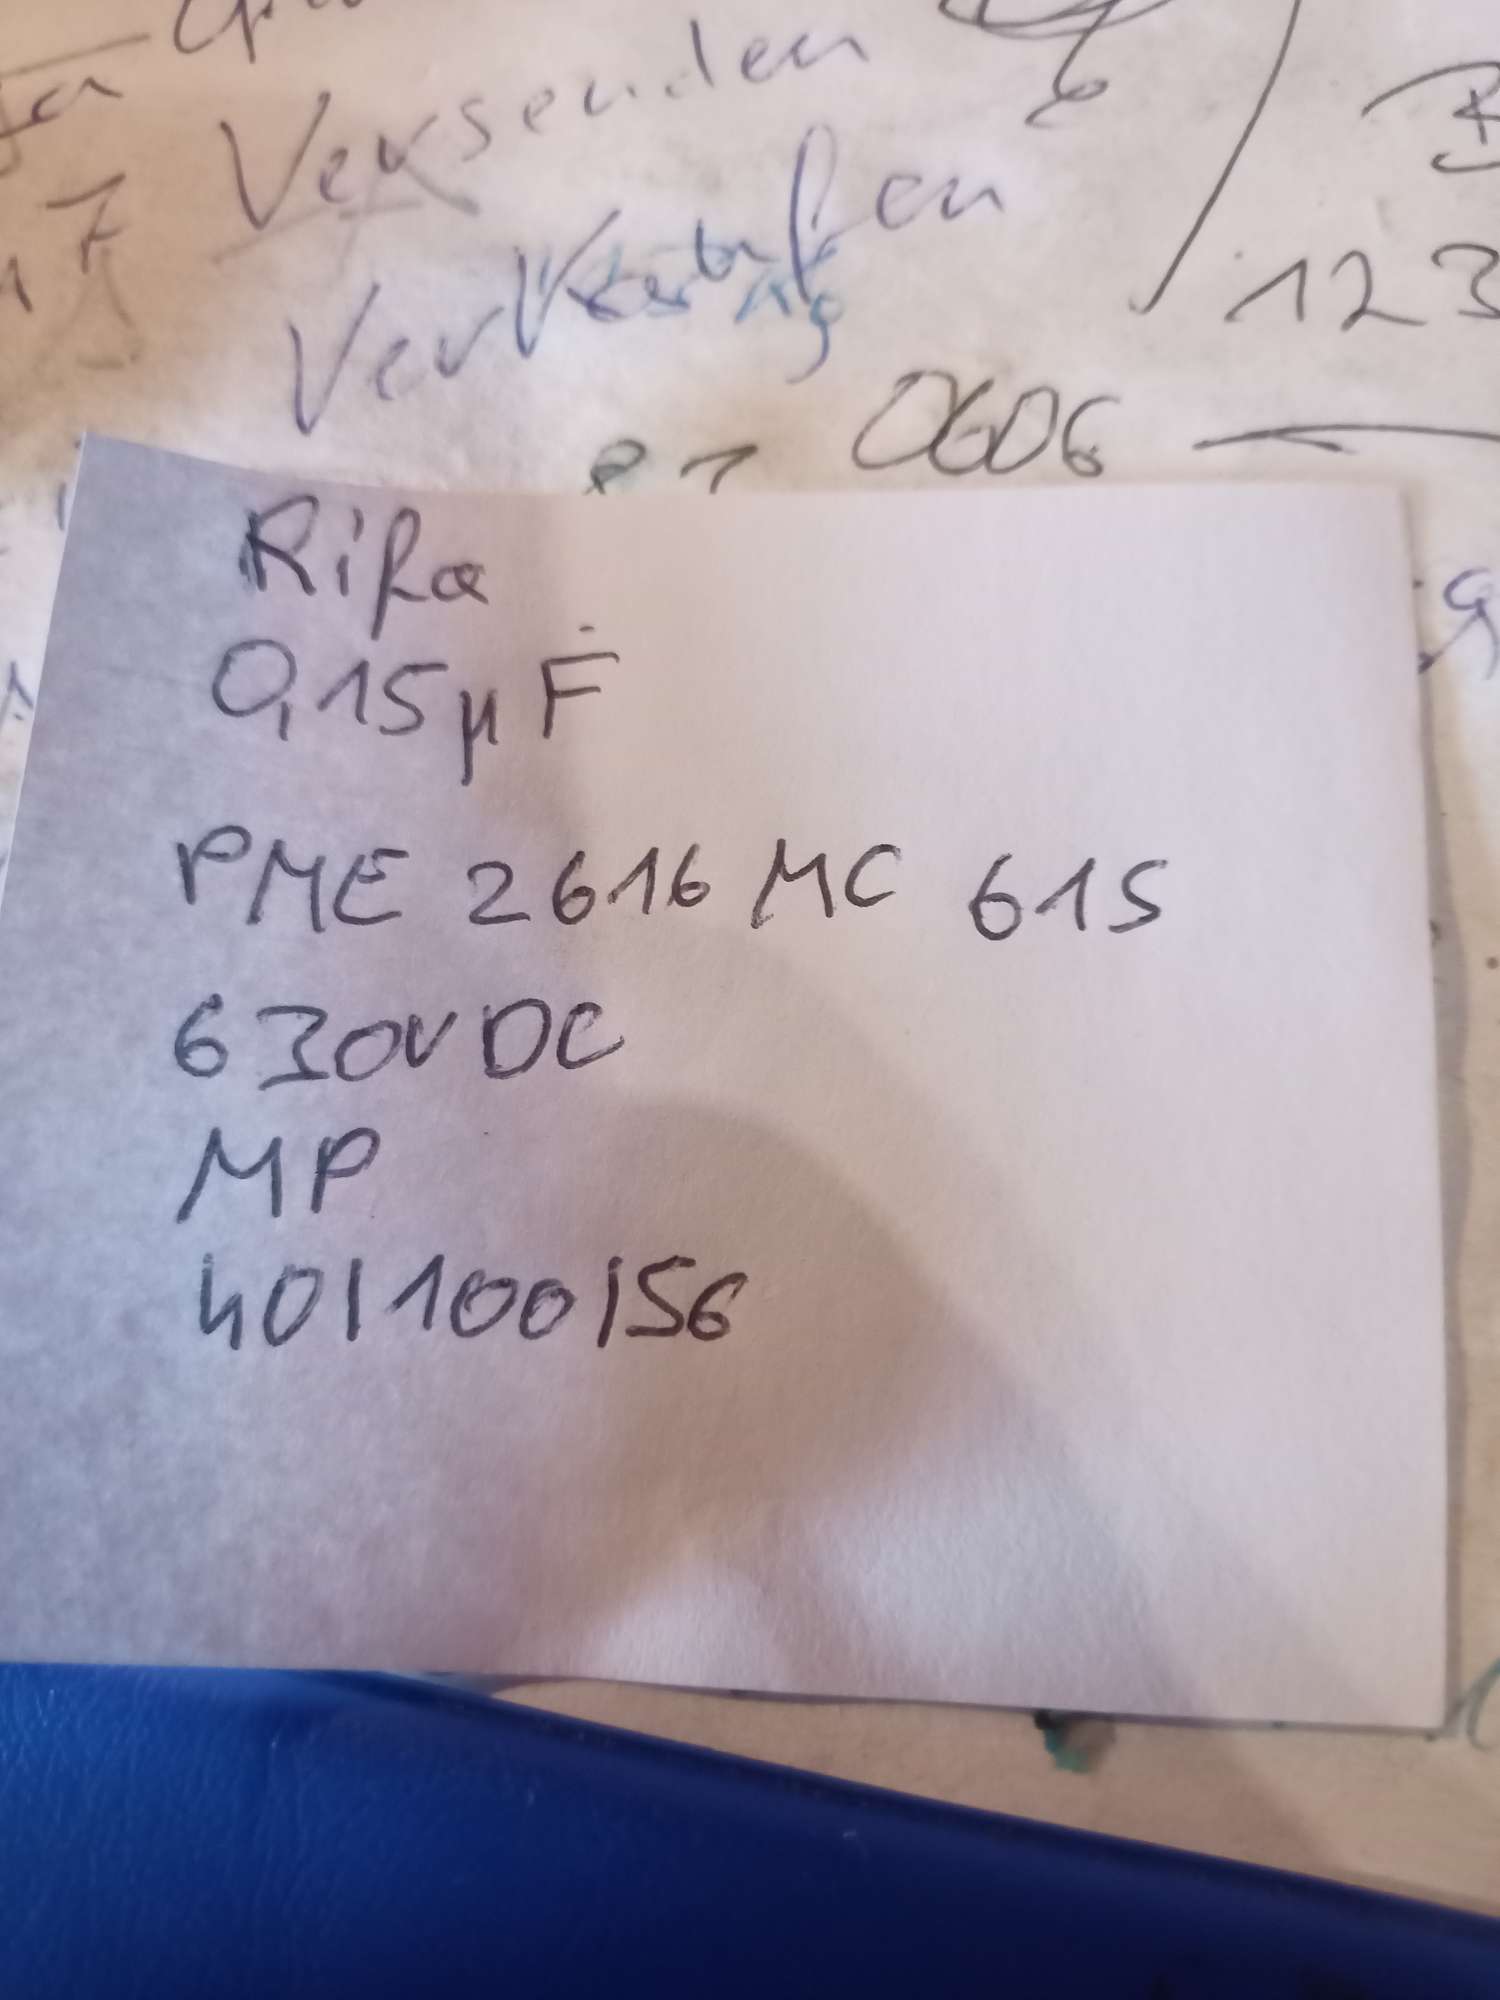 Versenden
Verkaufen
123
0606
Rifa
0,15µF
PME 2616 MC 615
630V DC
MP
40/100/56